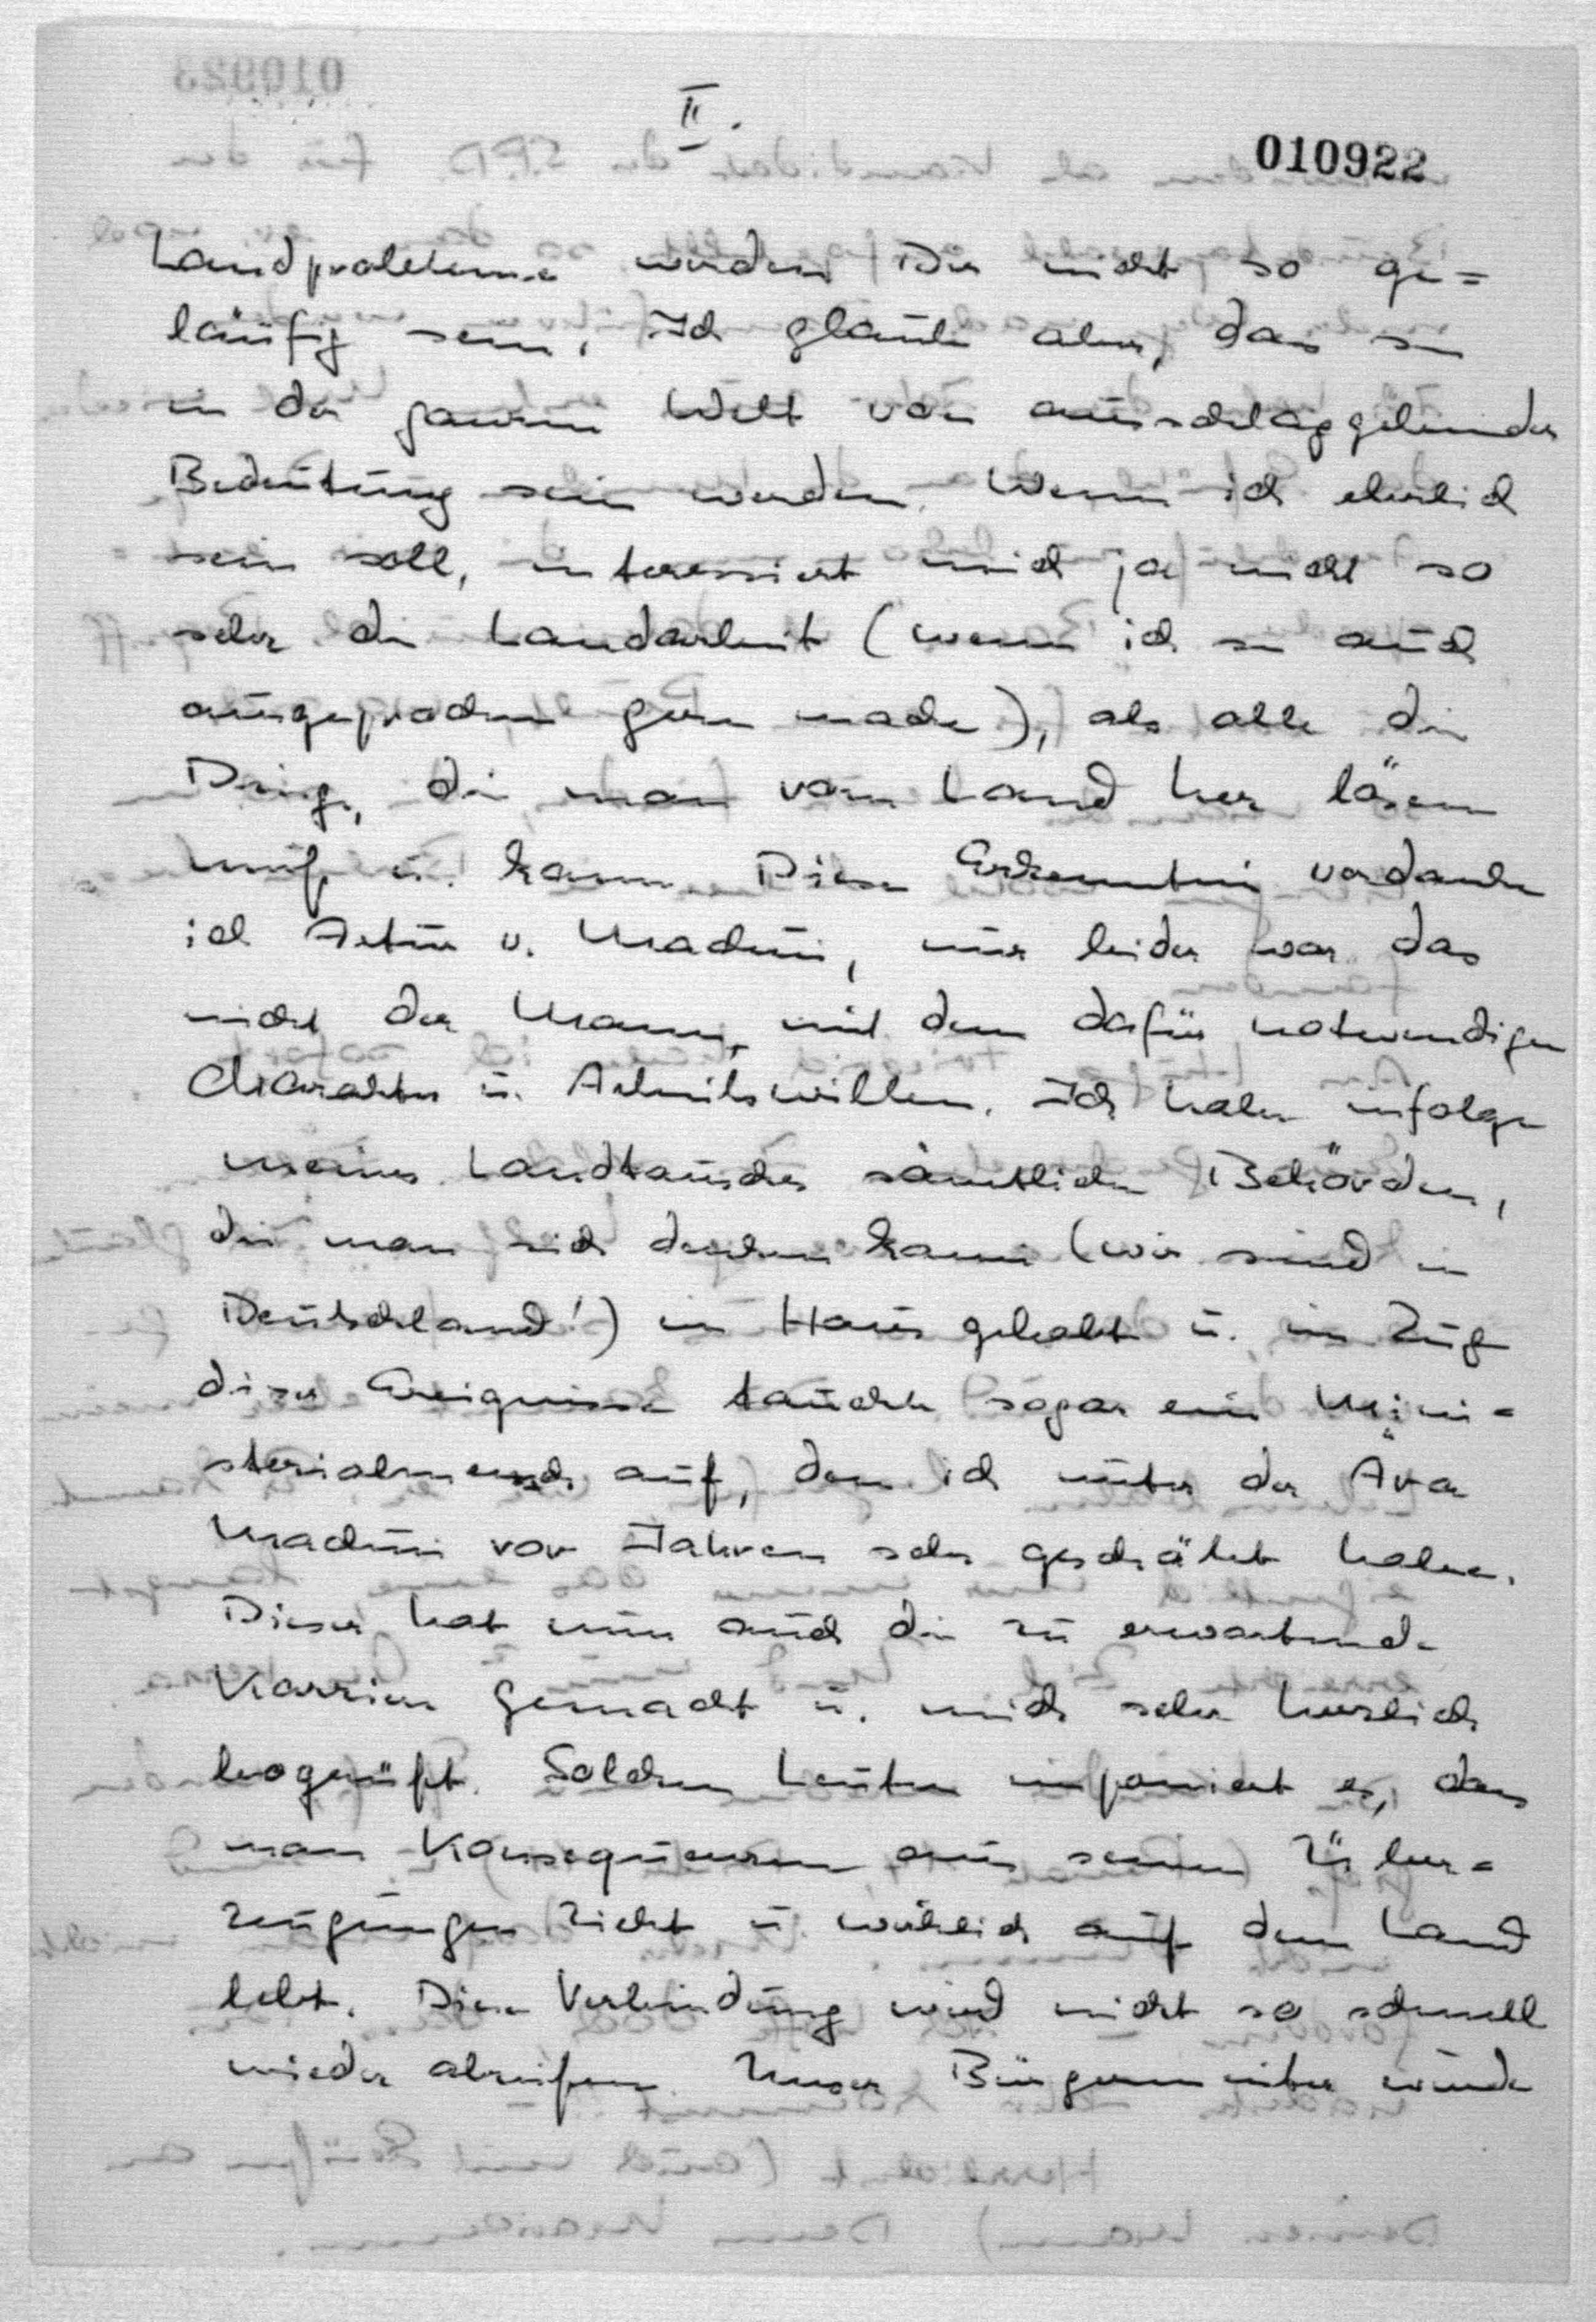 II.
010922
Landprobleme werden Dir nicht so ge=
läufig sein, Ich glaube aber, das sie
in der ganzen Welt von ausschlaggebender
Bedeutung sein werden. Wenn ich ehrlich
sein soll, interessiert mich ja nicht so
sehr die Landarbeit (wenn ich sie auch
ausgesprochen gern mache), als alle die
Dinge, die man vom Land her lösen
muß u. kann. Diese Erkenntnis verdanke
ich v. Machui, nur leider war das
nicht der Mann, mit dem dafür notwendigen
Charakter u. Arbeitswillen. Ich habe infolge
meines Landtausches sämtliche Behörden,
die man sich denken kann (wir sind in
Deutschland!) im Haus gehabt u. im Zuge
dieser Ereignisse tauchte sogar ein Mini=
sterialmensch auf, den ich unter der Ära
Machui vor Jahren sehr geschätzt habe.
Dieser hat nun auch die zu erwartende
Karriere gemacht u. mich sehr herzlich
begrüßt. Solchen Leuten imponiert es, dass
man Konsequenzen aus seinen Über=
zeugungen zieht u. wirklich auf dem Land
lebt. Diese Verbindung wird nicht so schnell
wieder abreißen. Unser Bürgermeister wurde